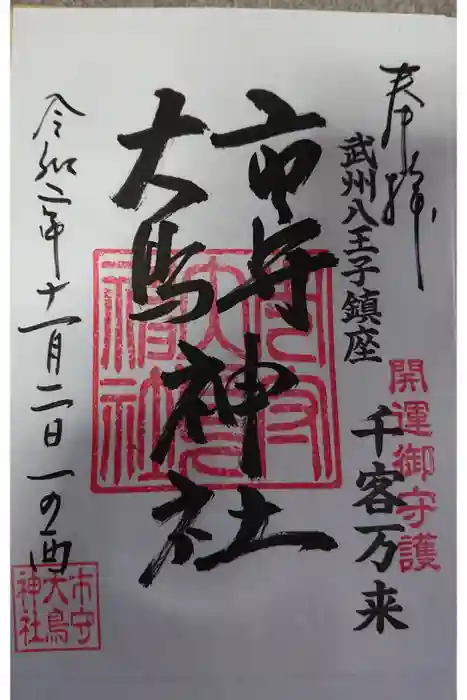 奉拝
武州八王子鎮座
開運御守護
千客万来
市守
大鳥
神社
令和二年十一月二日一の酉
市守
大鳥
神社